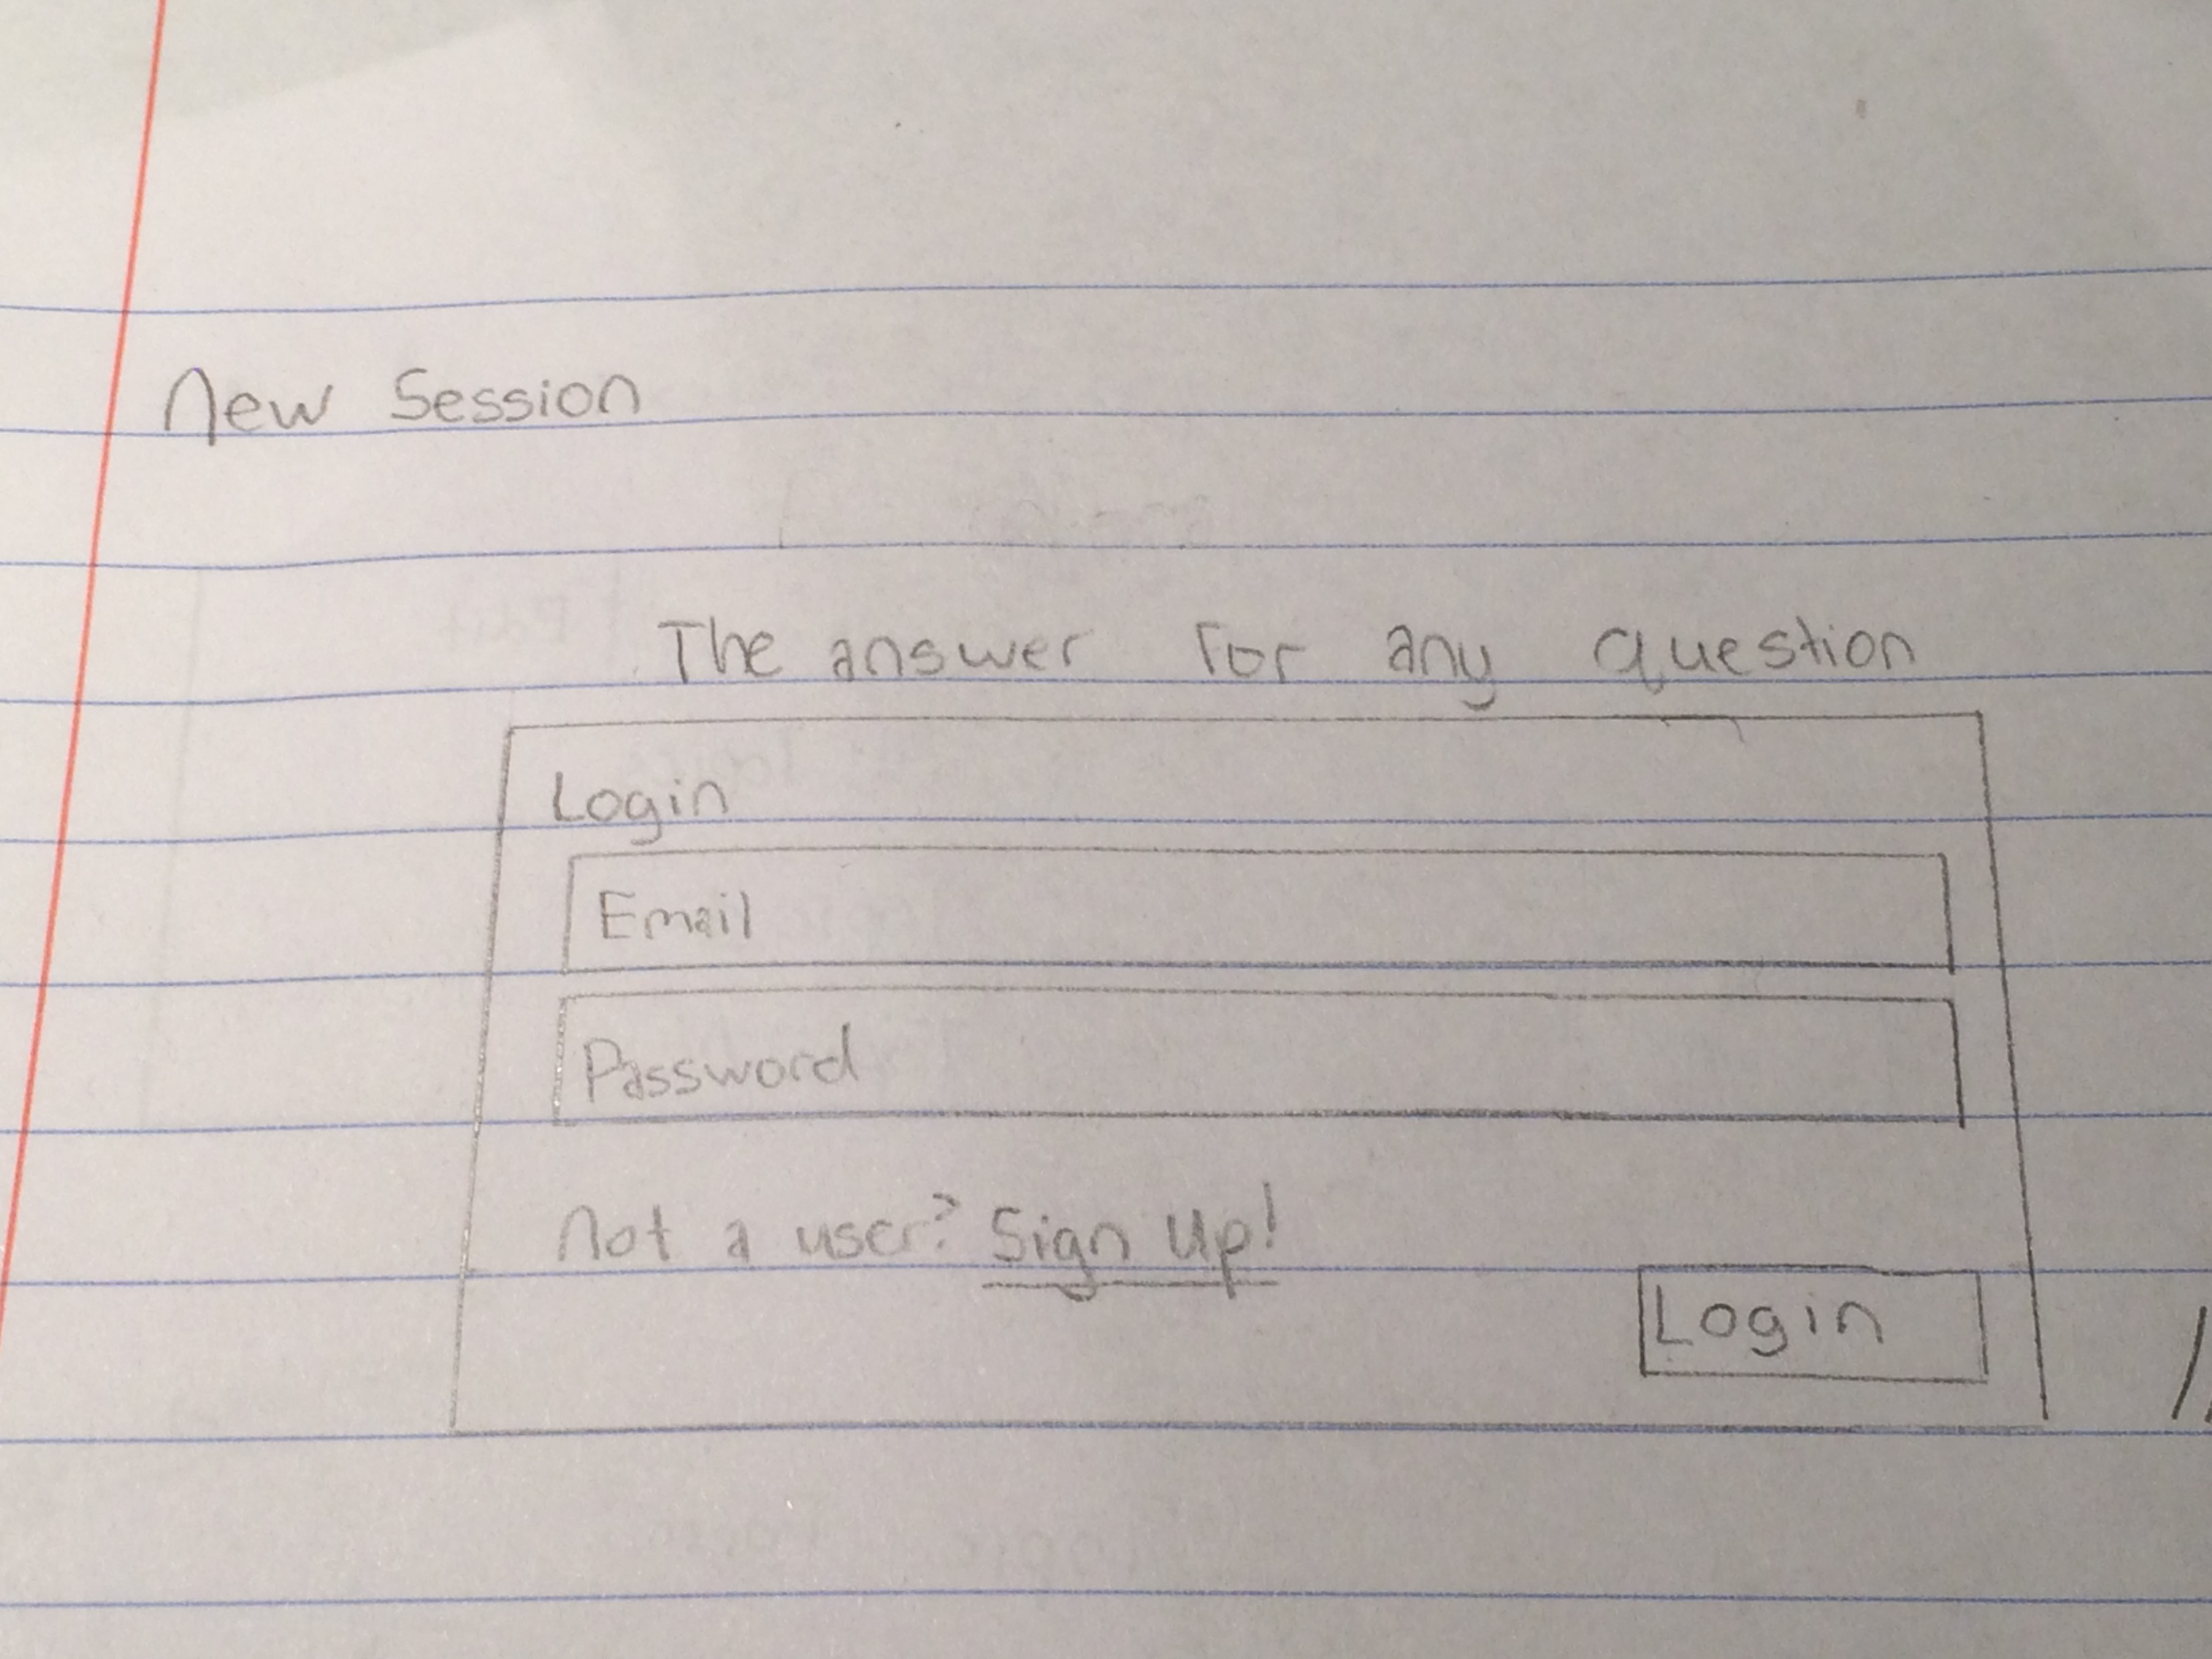 New Session
The answer for any question
Login
Email
Password
Not a user? Sign Up!
Login